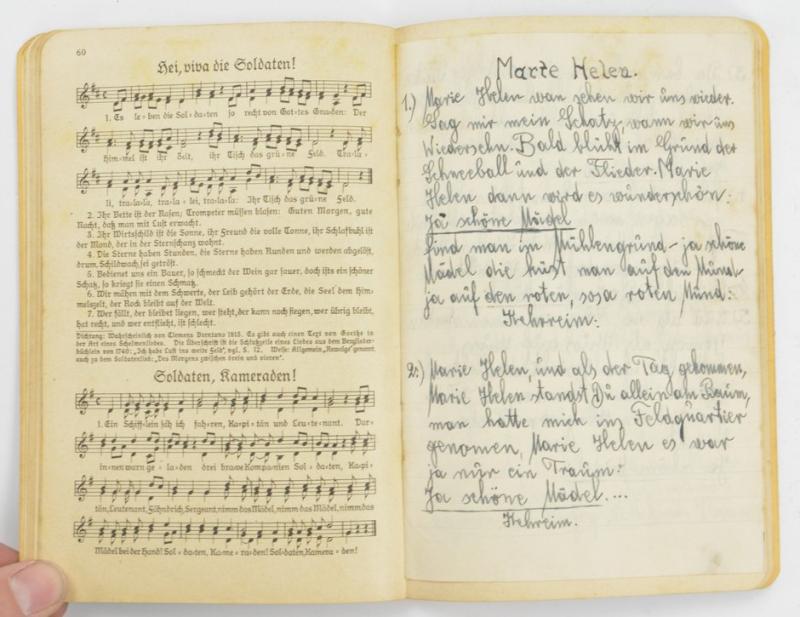 60
Hei, viva die Soldaten!
1. Es le-ben die Sol-da-ten so recht von Got-tes Gna-den: Der
Him-mel ist ihr Zelt, ihr Tisch das grü-ne Feld. Tra-la-
li, tra-la-la, tra-la-lei, tra-la-la: Ihr Tisch das grü-ne Feld.
2. Ihr Bette ist der Rasen; Trompeter müssen blasen: Guten Morgen, gute
Nacht, daß man mit Lust erwacht.
3. Ihr Wirtschild ist die Sonne, ihr Freund die volle Tonne, ihr Schlafbuhl ist
der Mond, der in der Sternschanz wohnt.
4. Die Sterne haben Stunden, die Sterne haben Runden und werden abgelöst,
drum, Schildwach, sei getröst.
5. Bedienet uns ein Bauer, so schmeckt der Wein gar sauer, doch ists ein schöner
Schatz, so kriegt sie einen Schmatz.
6. Wir mähen mit dem Schwerte, der Leib gehört der Erde, die Seel dem Him-
melszelt, der Rock bleibt auf der Welt.
7. Wer fällt, der bleibet liegen, wer steht, der kann noch siegen, wer übrig bleibt,
hat recht, und wer entflieht, ist schlecht.
Dichtung: Wahrscheinlich von Clemens Brentano 1813. Es gibt auch einen Text von Goethe in
der Art eines Schelmenliedes. Die Überschrift ist die Schlußzeile eines Liedes aus dem Bergliederbüchlein
von 1740: „Ich habe Lust ins weite Feld“, vgl. S. 12. Weise: Allgemein „Rewelge“ genannt,
auch zu dem Soldatenlied: „Des Morgens zwischen drein und vieren“.
Soldaten, Kameraden!
1. Ein Schiff-lein sah ich fah-ren, Ka-pi-tän und Leu-te-nant. Dar-
in-nen warn ge-la-den drei bra-ve Kom-pa-nien Sol-da-ten, Ka-pi-
tän, Leutenant, Fähndrich, Sergeant, nimm das Mädel, nimm das Mädel, nimm das
Mädel bei der Hand! Sol-da-ten, Ka-me-ra-den! Sol-da-ten, Kamera-den!
Marie Helen.
1.) Marie Helen wan sehen wir uns wieder.
Sag mir mein Schatz, wann wir uns
Wiedersehn. Bald blüht im Grund der
Schneeball und der Flieder. Marie
Helen dann wird es wunderschön:
Ja schöne Mädel
find man im Mühlengrund - ja schöne
Mädel die küst man auf den Mund-
ja auf den roten, sosa roten Mund:
Kehrreim:
2.) Marie Helen, und als der Tag gekommen,
Marie Helen standst Du allein am Baum,
man hatte mich ins Feldquartier
genomen, Marie Helen es war
ja nur ein Traum:
Ja schöne Mädel....
Kehreim.